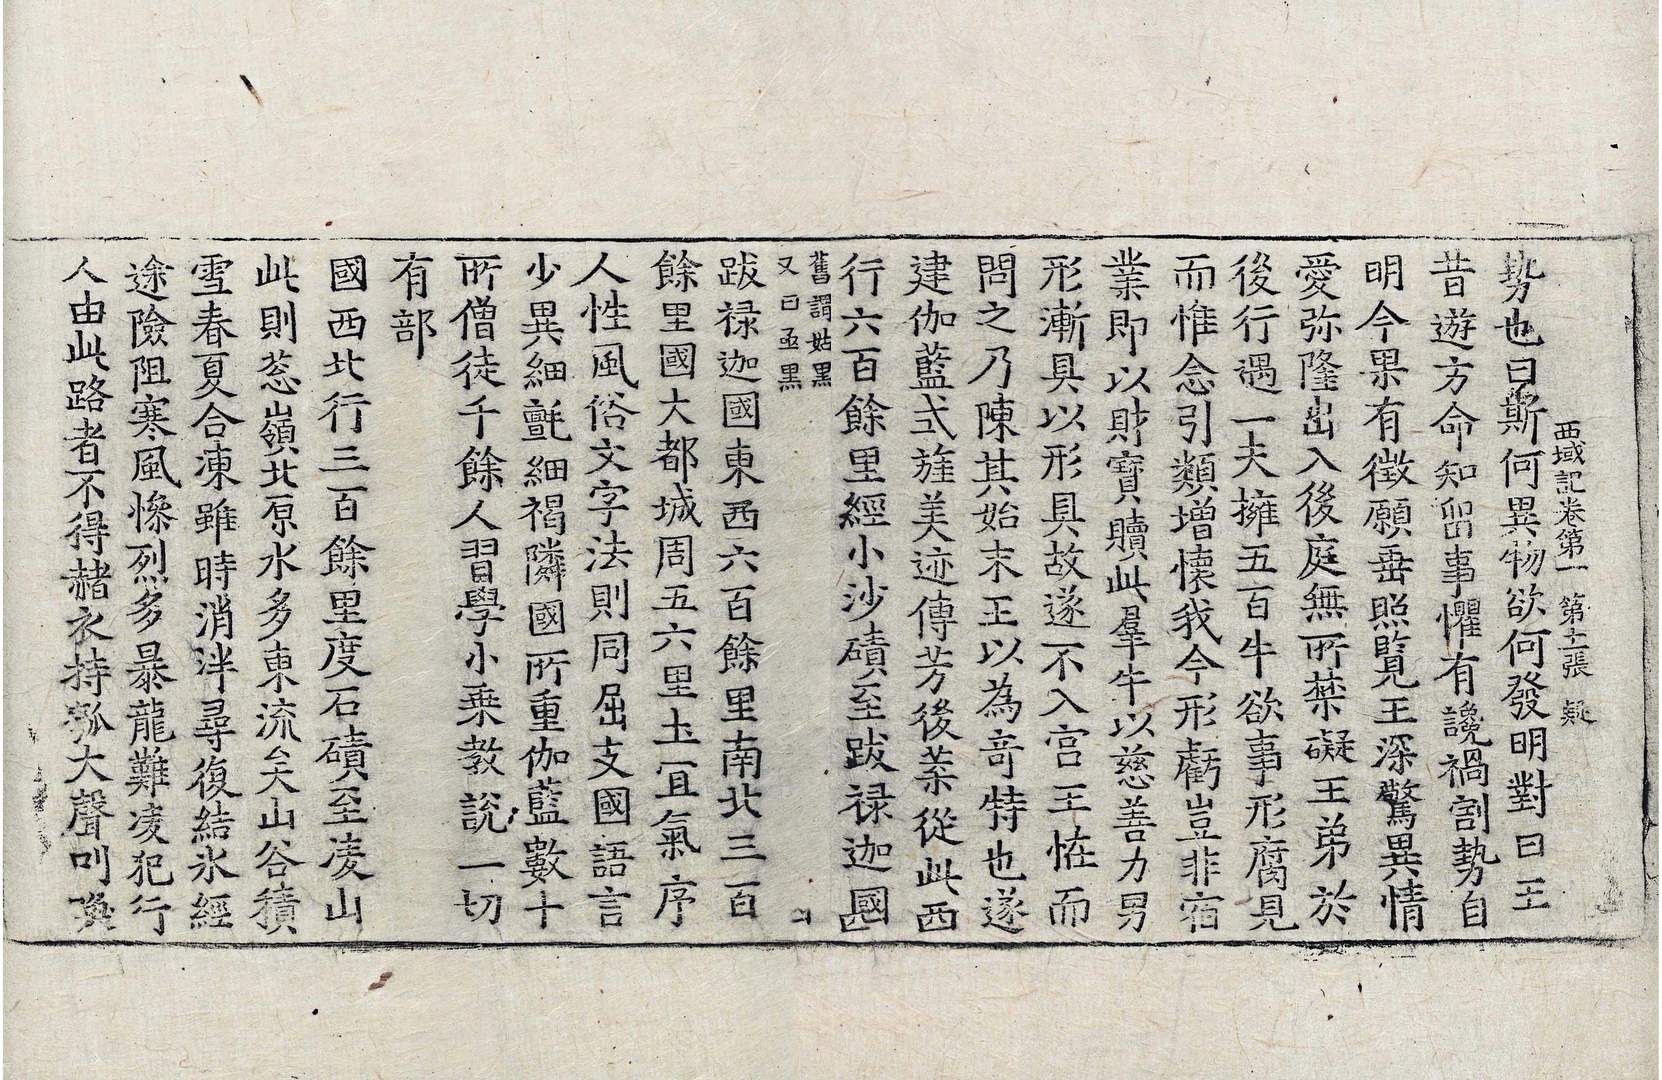 西域記卷第一 第十二張 疑
勢也曰斯何異物欲何發明對曰王
昔遊方命知留事懼有讒禍割勢自
明今果有徵願垂照覽王深驚異情
愛弥隆出入後庭無所禁礙王弟於
後行遇一夫擁五百牛欲事形腐見
而惟念引類增懷我今形虧豈非宿
業即以財寶贖此羣牛以慈善力男
形漸具以形具故遂不入宮王恠而
問之乃陳其始末王以為奇特也遂
建伽藍式旌美迹傳芳後葉從此西
行六百餘里經小沙磧至跋禄迦國
舊謂姑墨
又曰亟墨
跋禄迦國東西六百餘里南北三百
餘里國大都城周五六里土宜氣序
人性風俗文字法則同屈支國語言
少異細氈細褐隣國所重伽藍數十
所僧徒千餘人習學小乗教說一切
有部
國西北行三百餘里度石磧至凌山
此則葱嶺北原水多東流矣山谷積
雪春夏合凍雖時消泮尋復結氷經
途險阻寒風慘烈多暴龍難凌犯行
人由此路者不得赭衣持瓠大聲叫喚